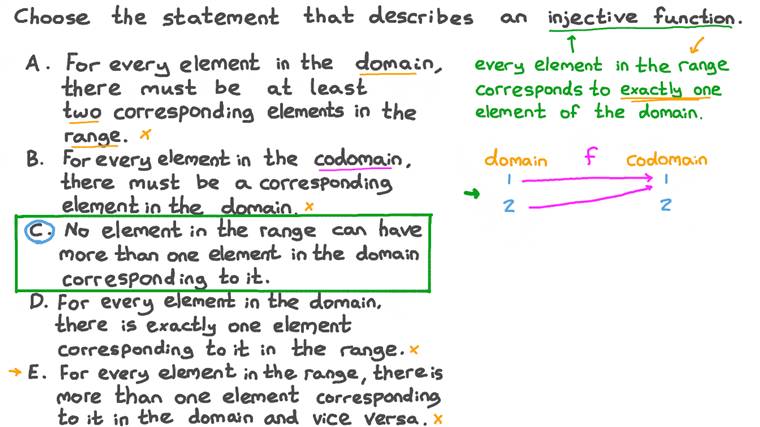 Choose the statement that describes an injective function.
A. For every element in the domain,
there must be at least
two corresponding elements in the
range. x
B. For every element in the codomain,
there must be a corresponding
element in the domain. x
C. No element in the range can have
more than one element in the domain
corresponding to it.
D. For every element in the domain,
there is exactly one element
corresponding to it in the range. x
→ E. For every element in the range, there is
more than one element corresponding
to it in the domain and vice versa. x
every element in the range
corresponds to exactly one
element of the domain.
domain f codomain
1 1
2 2